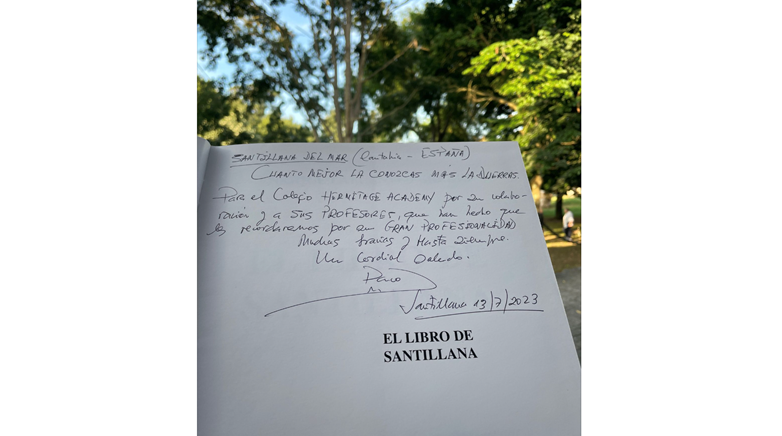 SANTILLANA DEL MAR (Cantabria - ESPAÑA)
CUANTO MEJOR LA CONOZCAS MÁS LA QUERRAS.
Para el Colegio HERMITAGE ACADEMY por su colabo-
ración y a sus PROFESORES, que han hecho que
les recordaremos por su GRAN PROFESIONALIDAD
Muchas gracias y Hasta siempre.
Un Cordial Saludo.
Santillana 13/7/2023
EL LIBRO DE
SANTILLANA